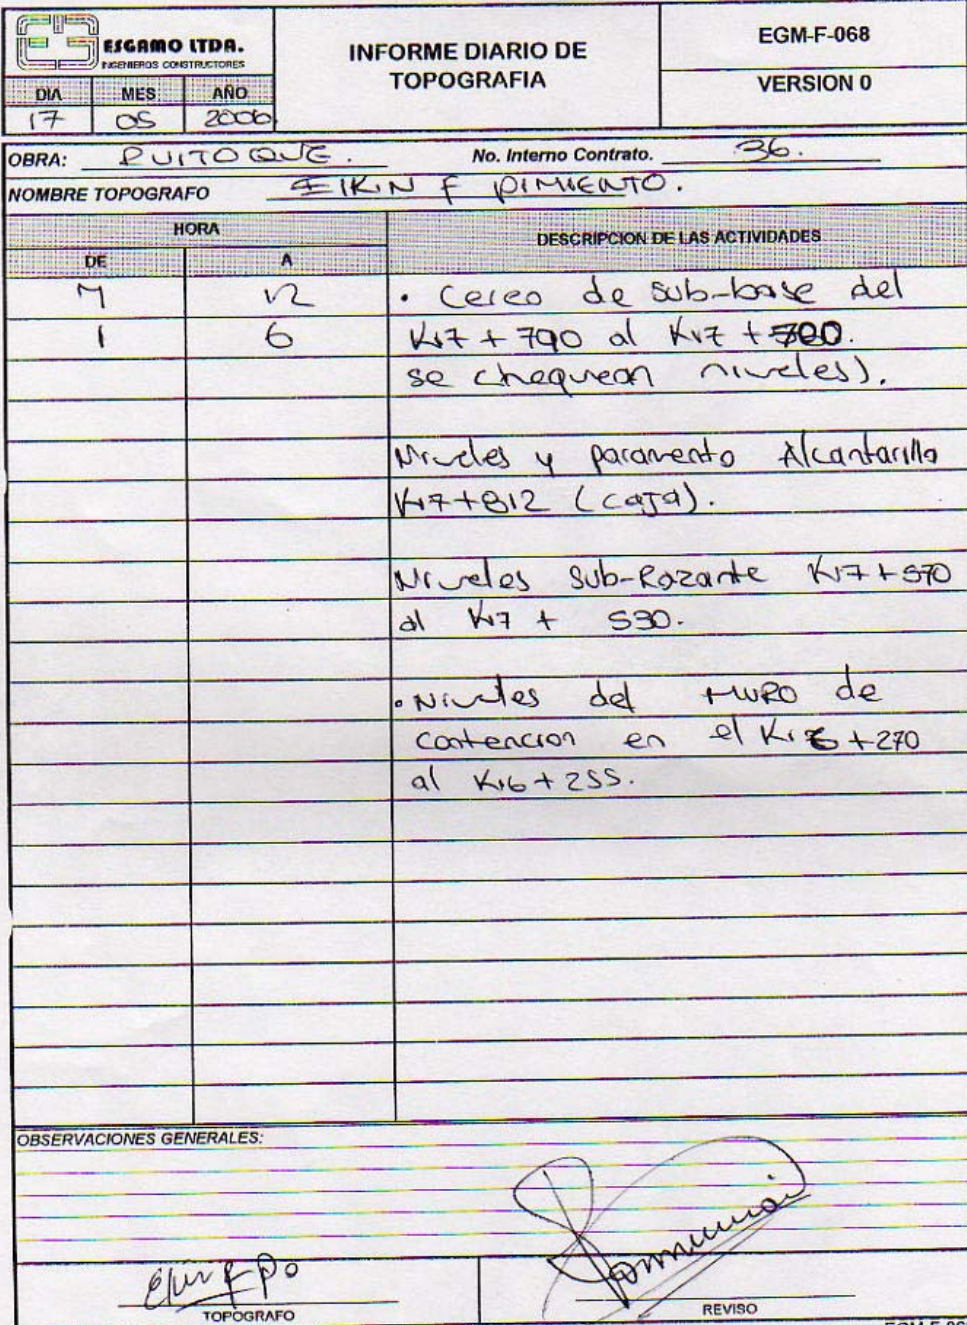 ESGAMO LTDA.
INGENIEROS CONSTRUCTORES
INFORME DIARIO DE
TOPOGRAFIA
EGM-F-068
VERSION 0
DIA MES AÑO
17 05 2006
OBRA: RUITOQUE. No. Interno Contrato. 36.
NOMBRE TOPOGRAFO ElKIN F PIMIENTO.
HORA DESCRIPCION DE LAS ACTIVIDADES
DE A
7 12 . Cereo de sub-base del
1 6 Kr7 + 790 al Kr7 + 700.
se chequean niveles).
Niveles y paramento Alcantarilla
Kr7+812 (caja).
Niveles sub-Razante Kr7+570
al Kr7 + 530.
. Niveles del MURO de
contencion en el Kr6 +270
al Kr6 + 255.
OBSERVACIONES GENERALES:
TOPOGRAFO REVISO